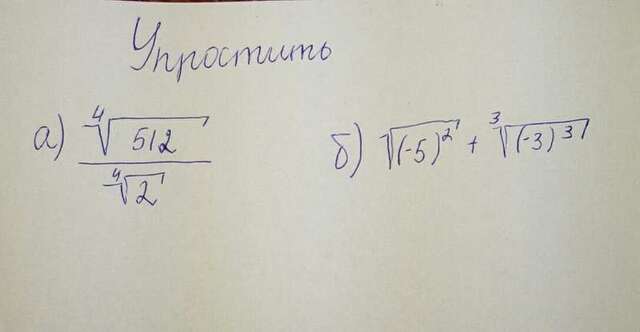 Упростить
а) ∜512 / ∜2
б) √(-5)² + ∛(-3)³